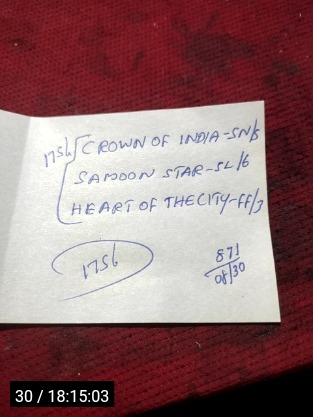 1756 CROWN OF INDIA-SN/5
SAMOON STAR-SL/6
HEART OF THE CITY-FF/3
1756
871
08/30
30 / 18:15:03